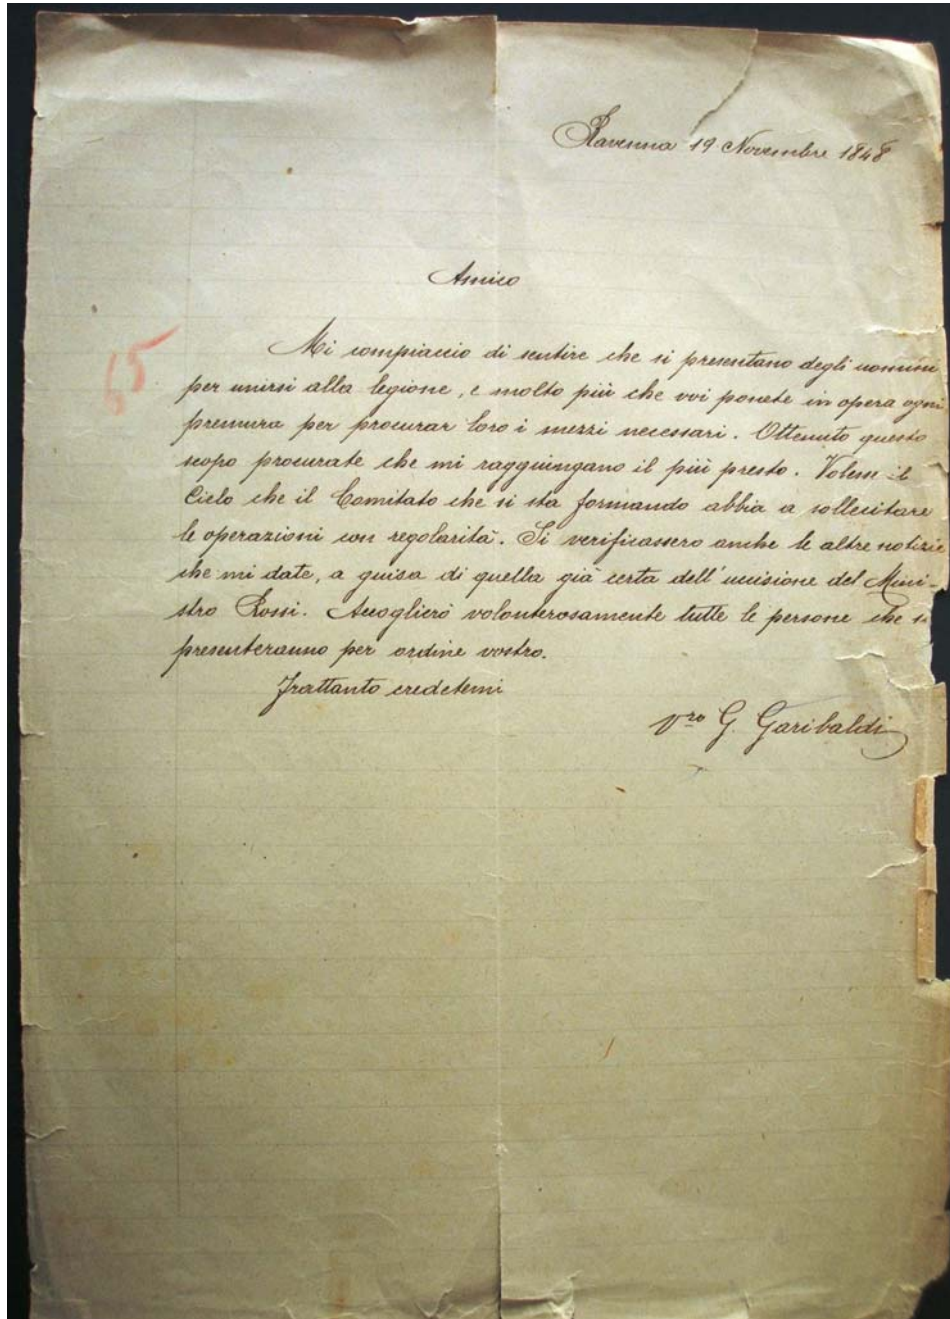 Ravenna 19 Novembre 1848
Amico
65
Mi compiaccio di sentire che si presentano degli uomini
per unirsi alla legione, e molto più che voi ponete in opera ogni
premura per procurar loro i mezzi necessari. Ottenuto questo
scopo procurate che mi raggiungano il più presto. Volesse il
Cielo che il Comitato che si sta formando abbia a sollecitare
le operazioni con regolarità. Si verificassero anche le altre notizie
che mi date, a guisa di quella già certa dell'uccisione del Mini-
stro Rossi. Accoglierò volonterosamente tutte le persone che si
presenteranno per ordine vostro.
Frattanto credetemi
Vro G. Garibaldi